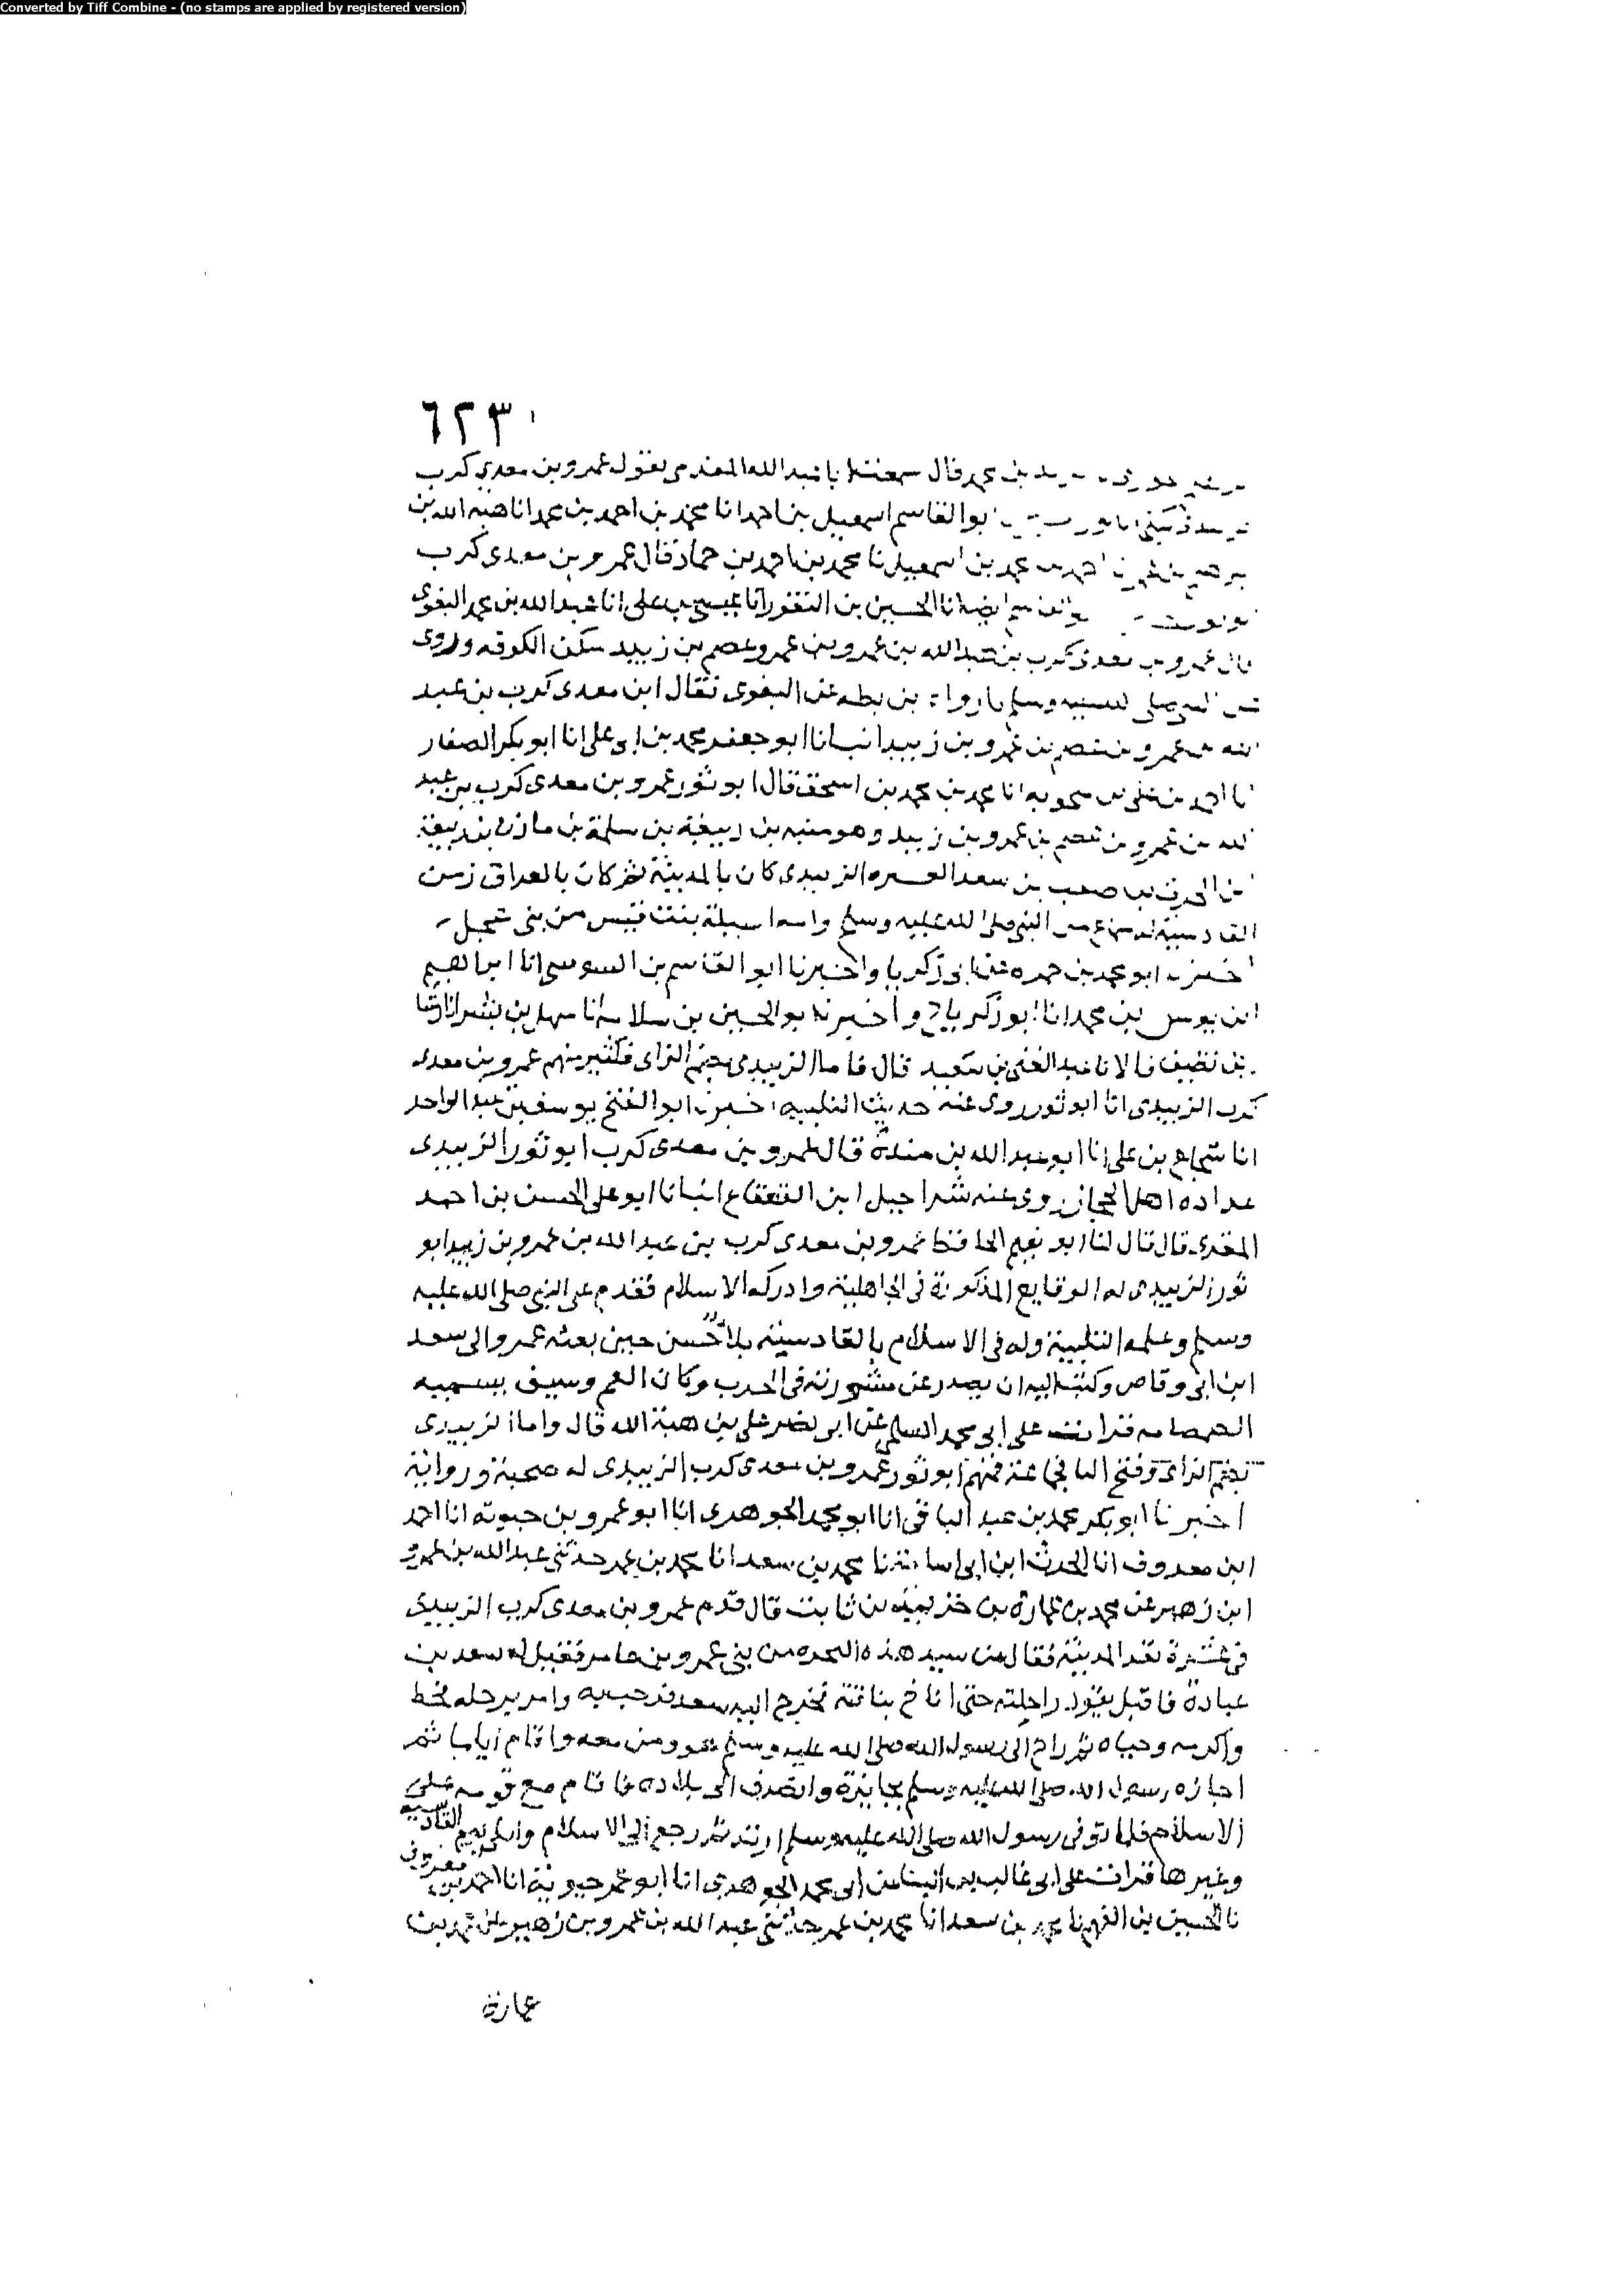 Converted by Tiff Combine - (no stamps are applied by registered version)
٦٢٣
محمد قال سمعت ابا عبد الله المقدمى يقول عمرو بن معدي كرب
ابو القاسم اسمعيل بن احمد انا محمد بن احمد بن محمد انا هبة الله بن
محمد بن اسمعيل نا محمد بن احمد بن حماد قال عمرو بن معدى كرب
ايضا انا الحسين بن النقور انا عيسى بن على انا عبد الله بن محمد البغوى
قال عمرو بن معدى كرب بن عبد الله بن عمرو بن عمرو عصم بن زبيد سكن الكوفه وروى
صلى وسلم بن بطه عن البغوى فقال ابن معدى كرب بن عبد
الله بن عمرو بن عصم بن عمرو بن زبيد انبانا ابو جعفر محمد بن ابى على انا ابو بكر الصفار
انا احمد بن على بن منجويه انا محمد بن محمد بن اسحق قال ابو ثور عمرو بن معدى كرب بن عبد
الله بن عمرو بن عصم بن عمرو بن زبيد وهو منبه بن ربيعة بن سلمة بن مازن بن ربيعة
بن صعب بن سعد العسره الزبيدى كان بالمدينة ثم كان بالعراق زمن
القادسية النبى صلى الله عليه وسلم بنت قيس من بنى عجل
ابو محمد بن حمزه عن ابى زكريا واخبرنا ابو القاسم بن السوسى انا ابراهيم
ابن يونس بن محمد انا ابو زكريا ح واخبرنا ابو الحسين بن سلامه انا سهل بن بشر انا رشا
بن نظيف قالا نا عبد الغنى بن سعيد قال فاما الزبيدى بضم الزاى فكثير منهم عمرو بن معدى
كرب الزبيدى انا ابو ثور روى عنه حديث التلبيه اخبرنا ابو الفتح يوسف بن عبد الواحد
انا شجاع بن على انا ابو عبد الله بن مندة قال عمرو بن معدى كرب ابو ثور الزبيدى
عداده اهل الحجاز روى عنه شراحيل ابن القعقاع انبانا ابو على الحسن بن احمد
المقرى قال قال لنا ابو نعيم الحافظ عمرو بن معدى كرب بن عبد الله بن عمرو بن زبيد ابو
ثور الزبيدى له الوقايع المذكورة فى الجاهلية وادرك الاسلام فقدم على النبى صلى الله عليه
وسلم وعلمه التلبية وله فى الاسلام بالقادسية بلا حسن حين بعثه عمر والى سعد
ابن ابى وقاص وكتب اليه ان يصدر عن مشورته فى الحرب وكان سيف يسميه
الصمصامه قرات على ابى محمد السلمى عن ابى نصر على بن هبة الله قال واما الزبيدى
بضم الزاى وفتح البا فجماعة فمنهم ابو ثور عمرو بن معدى كرب الزبيدى له صحبة ورواية
اخبرنا ابو بكر محمد بن عبد الباقى انا ابو محمد الجوهرى انا ابو عمرو بن حيوية انا احمد
ابن معروف انا الحرث ابن ابى اسامة نا محمد بن سعد انا محمد بن عمر حدثنى عبد الله بن عمرو
ابن زهير عن محمد بن عمارة بن خزيمة بن ثابت قال قدم عمرو بن معدى كرب الزبيدى
فى عشرة نفر المدينة فقال من سيد هذه البحره من بنى عمرو بن عامر فقيل له سعد بن
عبادة فاقبل يقود راحلته حتى اناخ بنا فخرج اليه سعد فرحب به وامر برحله فحط
واكرمه وحباه ثم راح الى رسول الله صلى الله عليه وسلم هو ومن معه واقام اياما ثم
اجازه رسول الله صلى الله عليه وسلم بجايزة وانصرف الى بلاده فاقام مع قومه على
الاسلام فلما توفى رسول الله صلى الله عليه وسلم ارتد ثم رجع الى الاسلام وابلى يوم القادسيه
وغيرها قرات على ابى غالب بن البنا عن ابى محمد الجوهرى انا ابو عمر حيوية انا احمد بن معروف
نا الحسين بن الفهم نا محمد بن سعد انا محمد بن عمر حدثنى عبد الله بن عمرو بن زهير عن محمد بن
عمارة